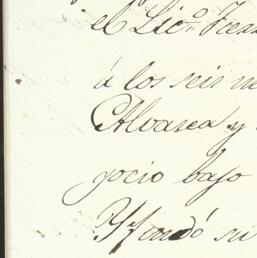 el Lic.º Fran
á los seis m
Alvarea y
gocio bajo
Y fundó su